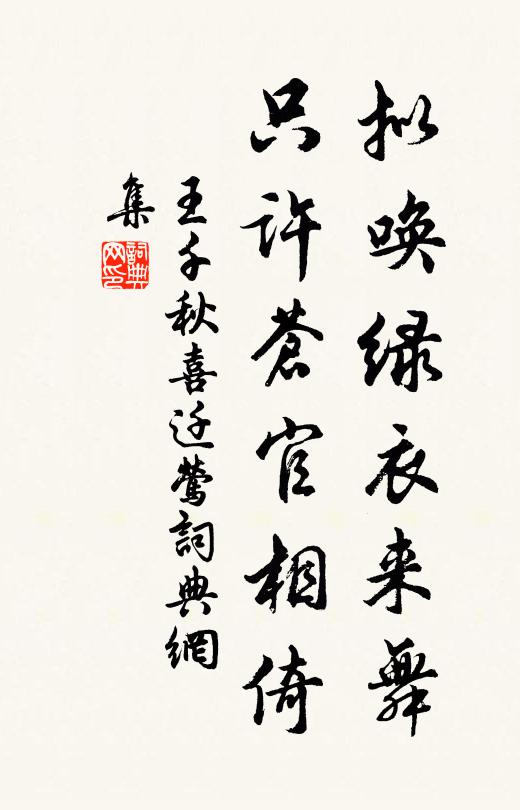 拟唤绿衣来舞
只许苍官相倚
王千秋喜迁莺詞典網
集
詞典网印